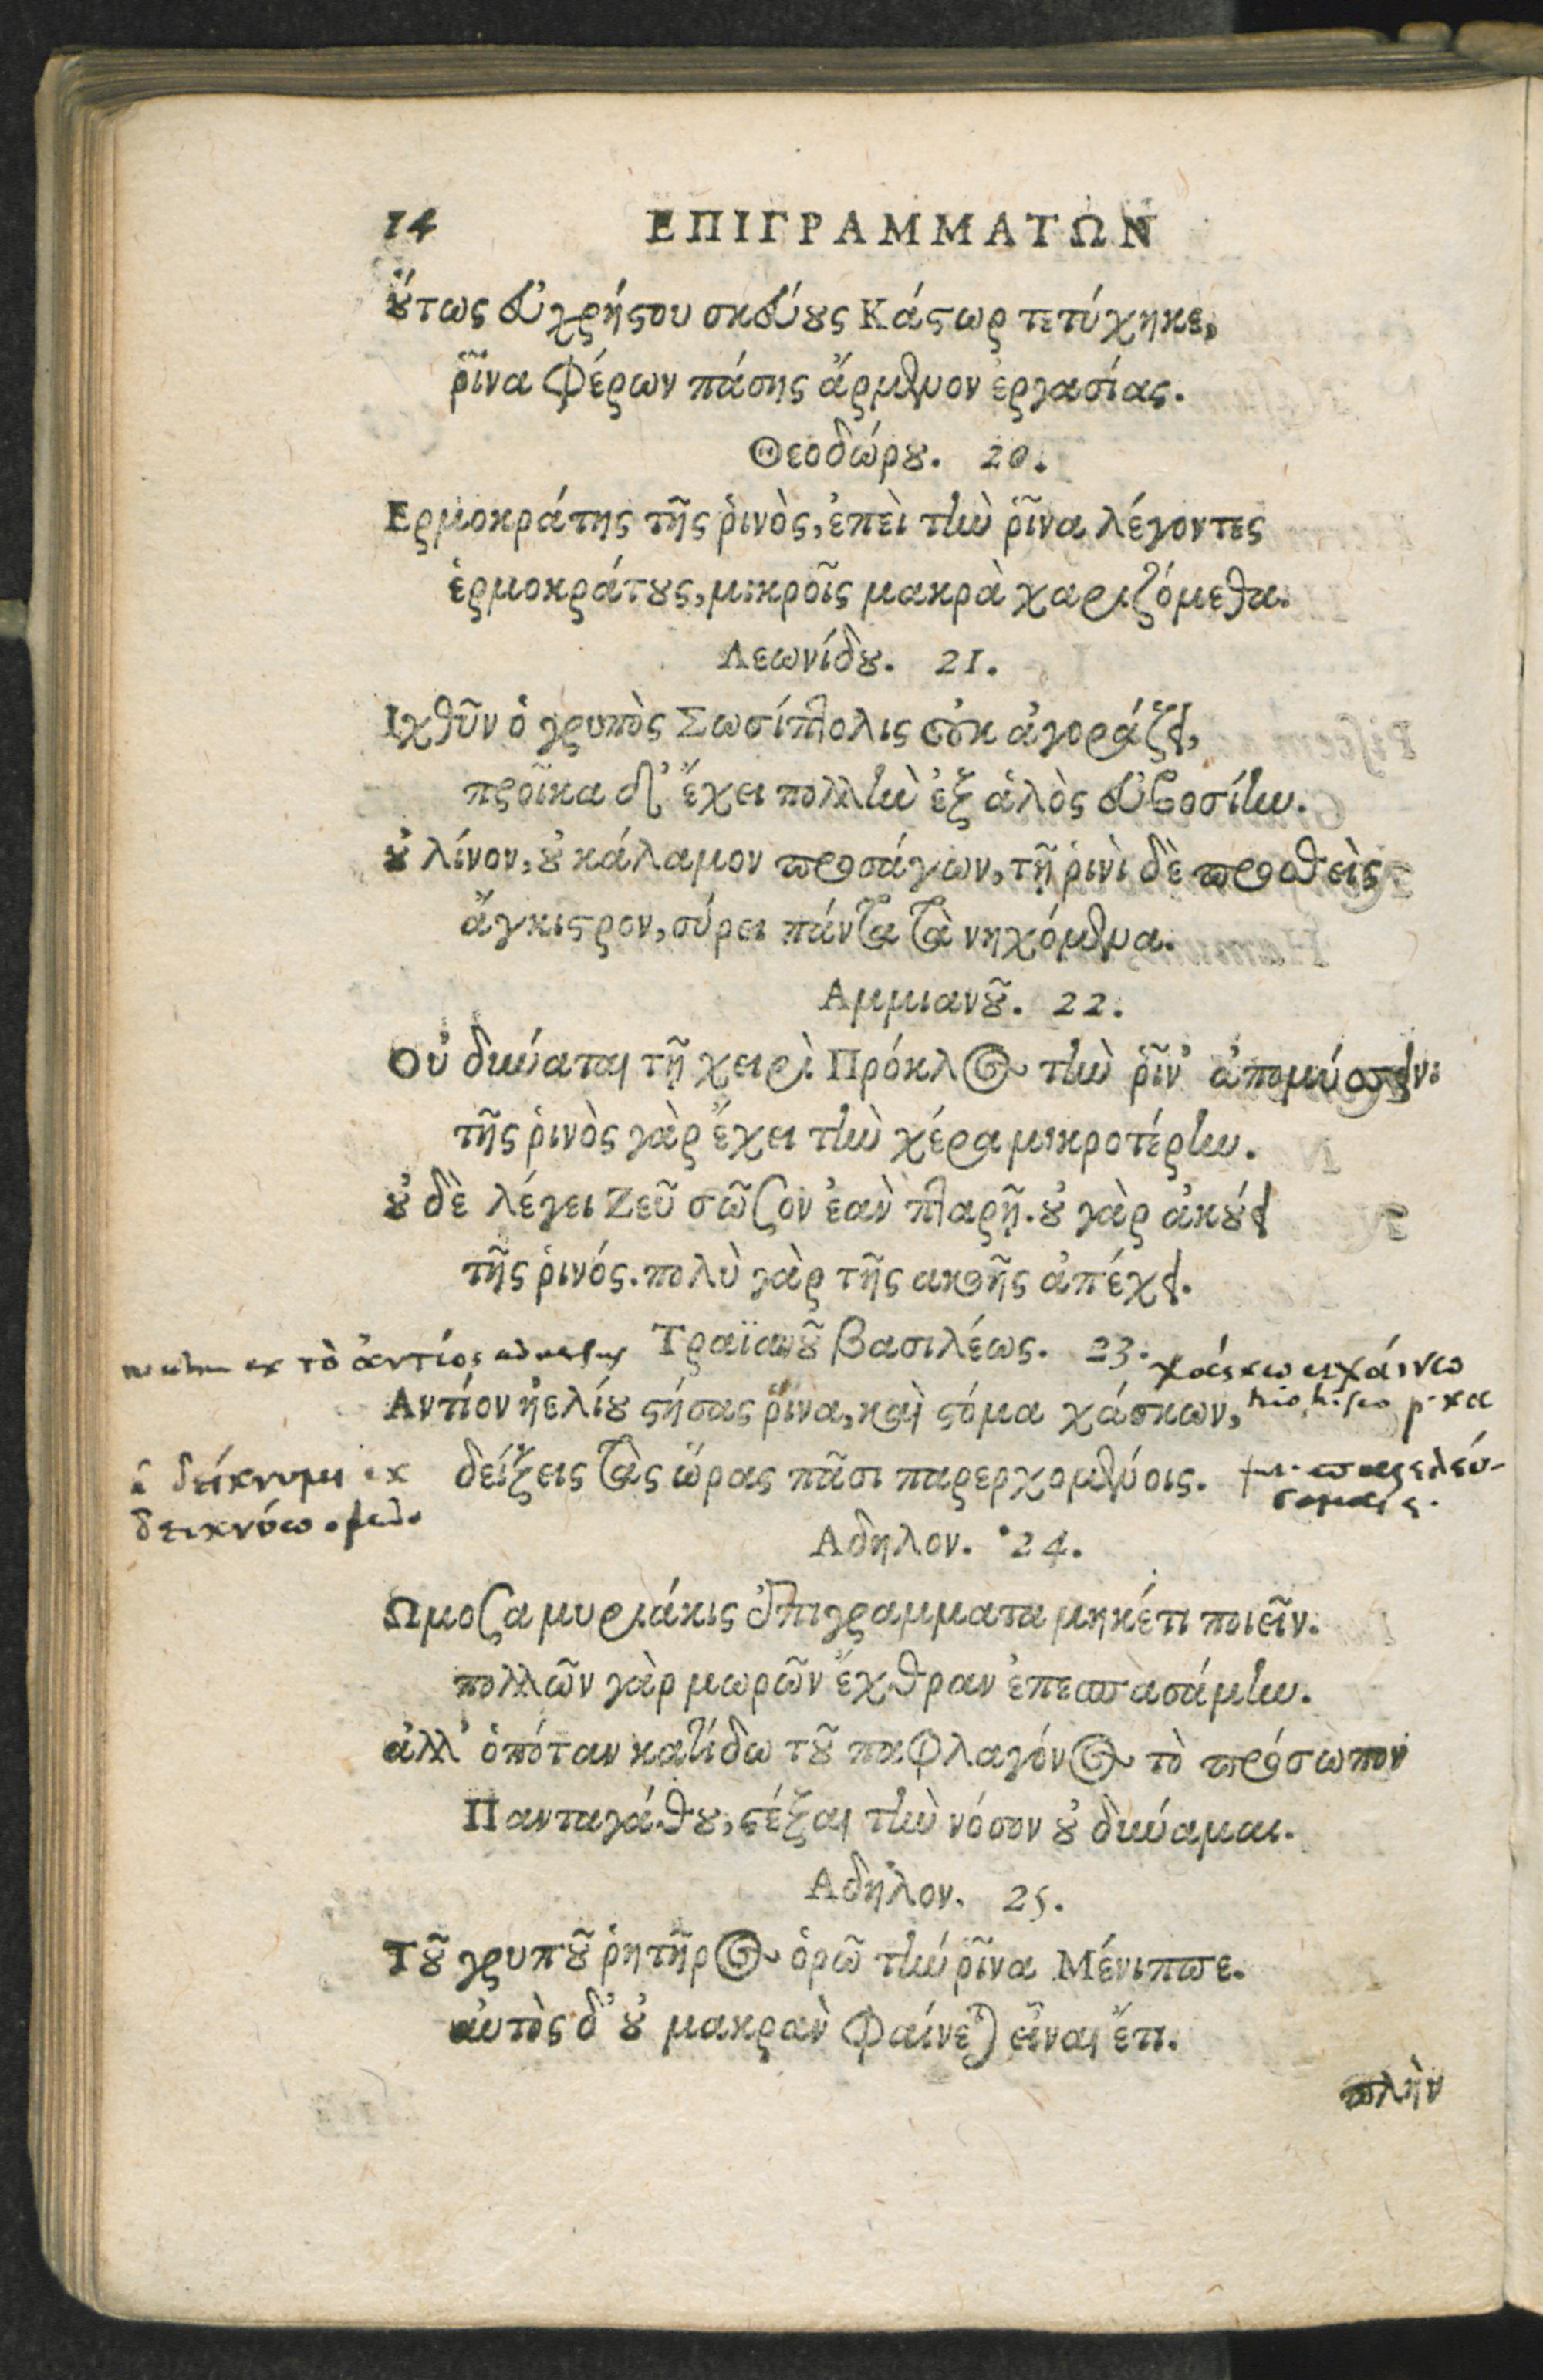 14 ΕΠΙΓΡΑΜΜΑΤΩΝ
οὕτως εὐχρήστου σκεύους Κάστωρ τετύχηκε,
ῥῖνα φέρων πάσης ἄρμενον ἐργασίας.
Θεοδώρου. 20.
Ερμοκράτης τῆς ῥινὸς, ἐπεὶ τὴν ῥῖνα λέγοντες
ἑρμοκράτους, μικροῖς μακρὰ χαριζόμεθα.
Λεωνίδου. 21.
Ιχθῦν ὁ γρυπὸς Σωσίπτολις οὐκ ἀγοράζει,
προῖκα δ' ἔχει πολλὴν ἐξ ἁλὸς εὐβοσίην.
οὐ λίνον, οὐ κάλαμον προσάγων, τῇ ῥινὶ δὲ προσθεὶς
ἄγκιστρον, σύρει πάντα τὰ νηχόμενα.
Αμμιανοῦ. 22.
Οὐ δύναται τῇ χειρὶ Πρόκλος τὴν ῥῖν' ἀπομύσσειν·
τῆς ῥινὸς γὰρ ἔχει τὴν χέρα μικροτέρην.
οὐδὲ λέγει Ζεῦ σῶσον ἐὰν πταρῇ. οὐ γὰρ ἀκούει
τῆς ῥινός. πολὺ γὰρ τῆς ακοῆς ἀπέχει.
Τραϊανοῦ βασιλέως. 23.
τὸ ἀντίος
χάσκω χάινω
Αντίον ἠελίου στήσας ῥῖνα, καὶ στόμα χάσκων,
δείξεις τὰς ὥρας πᾶσι παρερχομένοις.
δείκνυμι ex
δεικνύω
Αδηλον. 24.
Ωμοσα μυριάκις ἐπιγραμματα μηκέτι ποιεῖν.
πολλῶν γὰρ μωρῶν ἔχθραν ἐπεσπασάμην.
ἀλλ' ὁπόταν κατίδω τοῦ παφλαγόνος τὸ πρόσωπον
Πανταγάθου, στέξαι τὴν νόσον οὐ δύναμαι.
Αδηλον. 25.
Τοῦ γρυποῦ ῥητῆρος ὁρῶ τὴν ῥῖνα Μένιππε.
αὐτὸς δ' οὐ μακρὰν φαίνεται εἶναι ἔτι.
πλὴν